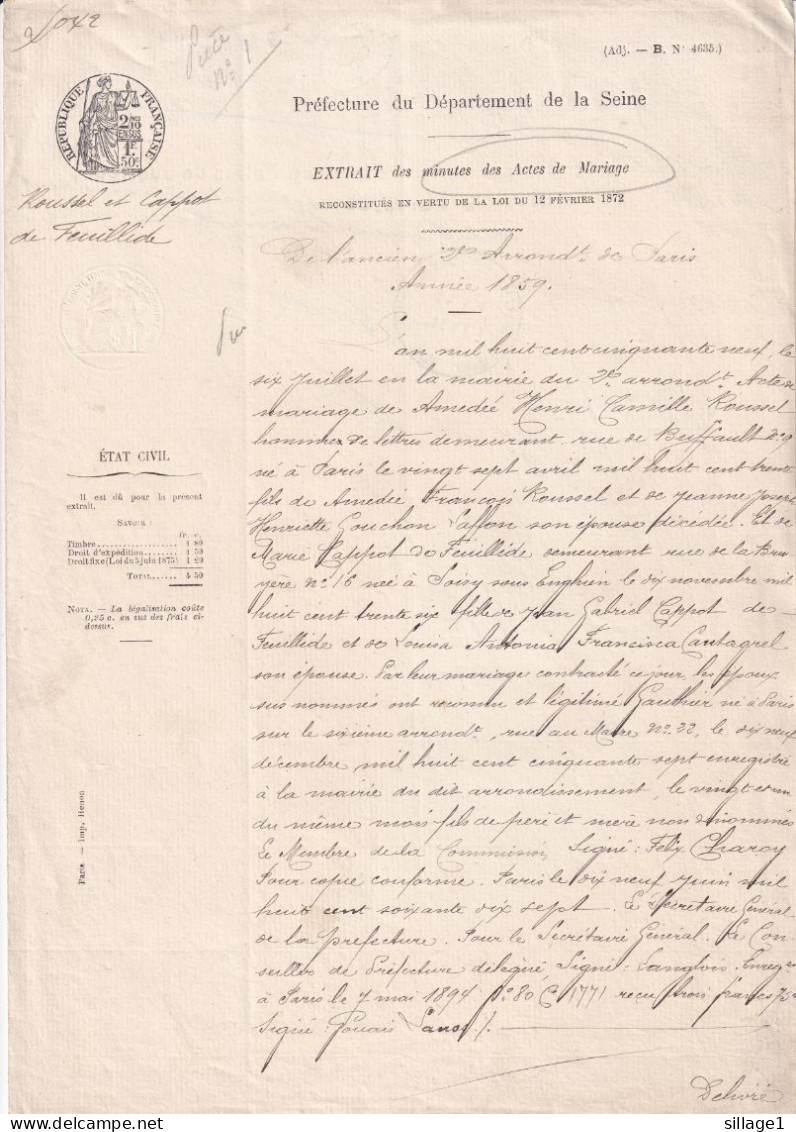 2042
Pièce
N° 1
(Adj. — B. N° 4635.)
RÉPUBLIQUE FRANÇAISE
2/10 EN SUS
1F. 50c.
Préfecture du Département de la Seine
EXTRAIT des minutes des Actes de Mariage
RECONSTITUÉS EN VERTU DE LA LOI DU 12 FÉVRIER 1872
Roussel et Cappot
de Feuillide
De l'ancien 2e Arrondt. de Paris
Année 1859.
L'an mil huit cent cinquante neuf, le
six Juillet en la mairie du 2e arrondt. Acte de
mariage de Amedée Henri Camille Roussel
homme de lettres demeurant rue de Buffault No 9
né à Paris le vingt sept avril mil huit cent trente
fils de Amedée François Roussel et de Jeanne Joseph
Henriette Gouchon Laffon son épouse décédée. Et de
Marie Cappot de Feuillide demeurant rue de la Bru
yère No. 16 née à Soisy sous Enghien le dix novembre mil
huit cent trente six fille de Jean Gabriel Cappot de
Feuillide et de Louisa Antonia Francisca Cantagrel
son épouse. Par leur mariage contracté ce jour, les époux
sus nommés ont reconnu et légitimé Gauthier né à Paris
sur le sixième arrondt., rue au Maire No. 22, le dix neuf
décembre mil huit cent cinquante sept enregistré
à la mairie du dit arrondissement, le vingt et un
du même mois fils de père et mère non dénommés
Le Membre de la Commission, Signé : Felix Charoy
Pour copie conforme. Paris le dix neuf juin mil
huit cent soixante dix sept. Le Secretaire Général
de la prefecture. Pour le Secrétaire Général. Le Con
seiller de Préfecture délégué, Signé : Langlois. Enreg
à Paris le 7 mai 1894 fo. 80 Ce 1771 reçu trois francs 75
Signé :
Delivré
ÉTAT CIVIL
Il est dû pour la présent
extrait.
SAVOIR :
fr. c.
Timbre................ 1 80
Droit d'expédition....... 1 50
Droit fixe (Loi du 5 juin 1875) 1 20
TOTAL...... 4 50
NOTA. — La légalisation coûte
0,25 c. en sus des frais ci-
dessus.
Paris. — Imp. Henon
sillage1